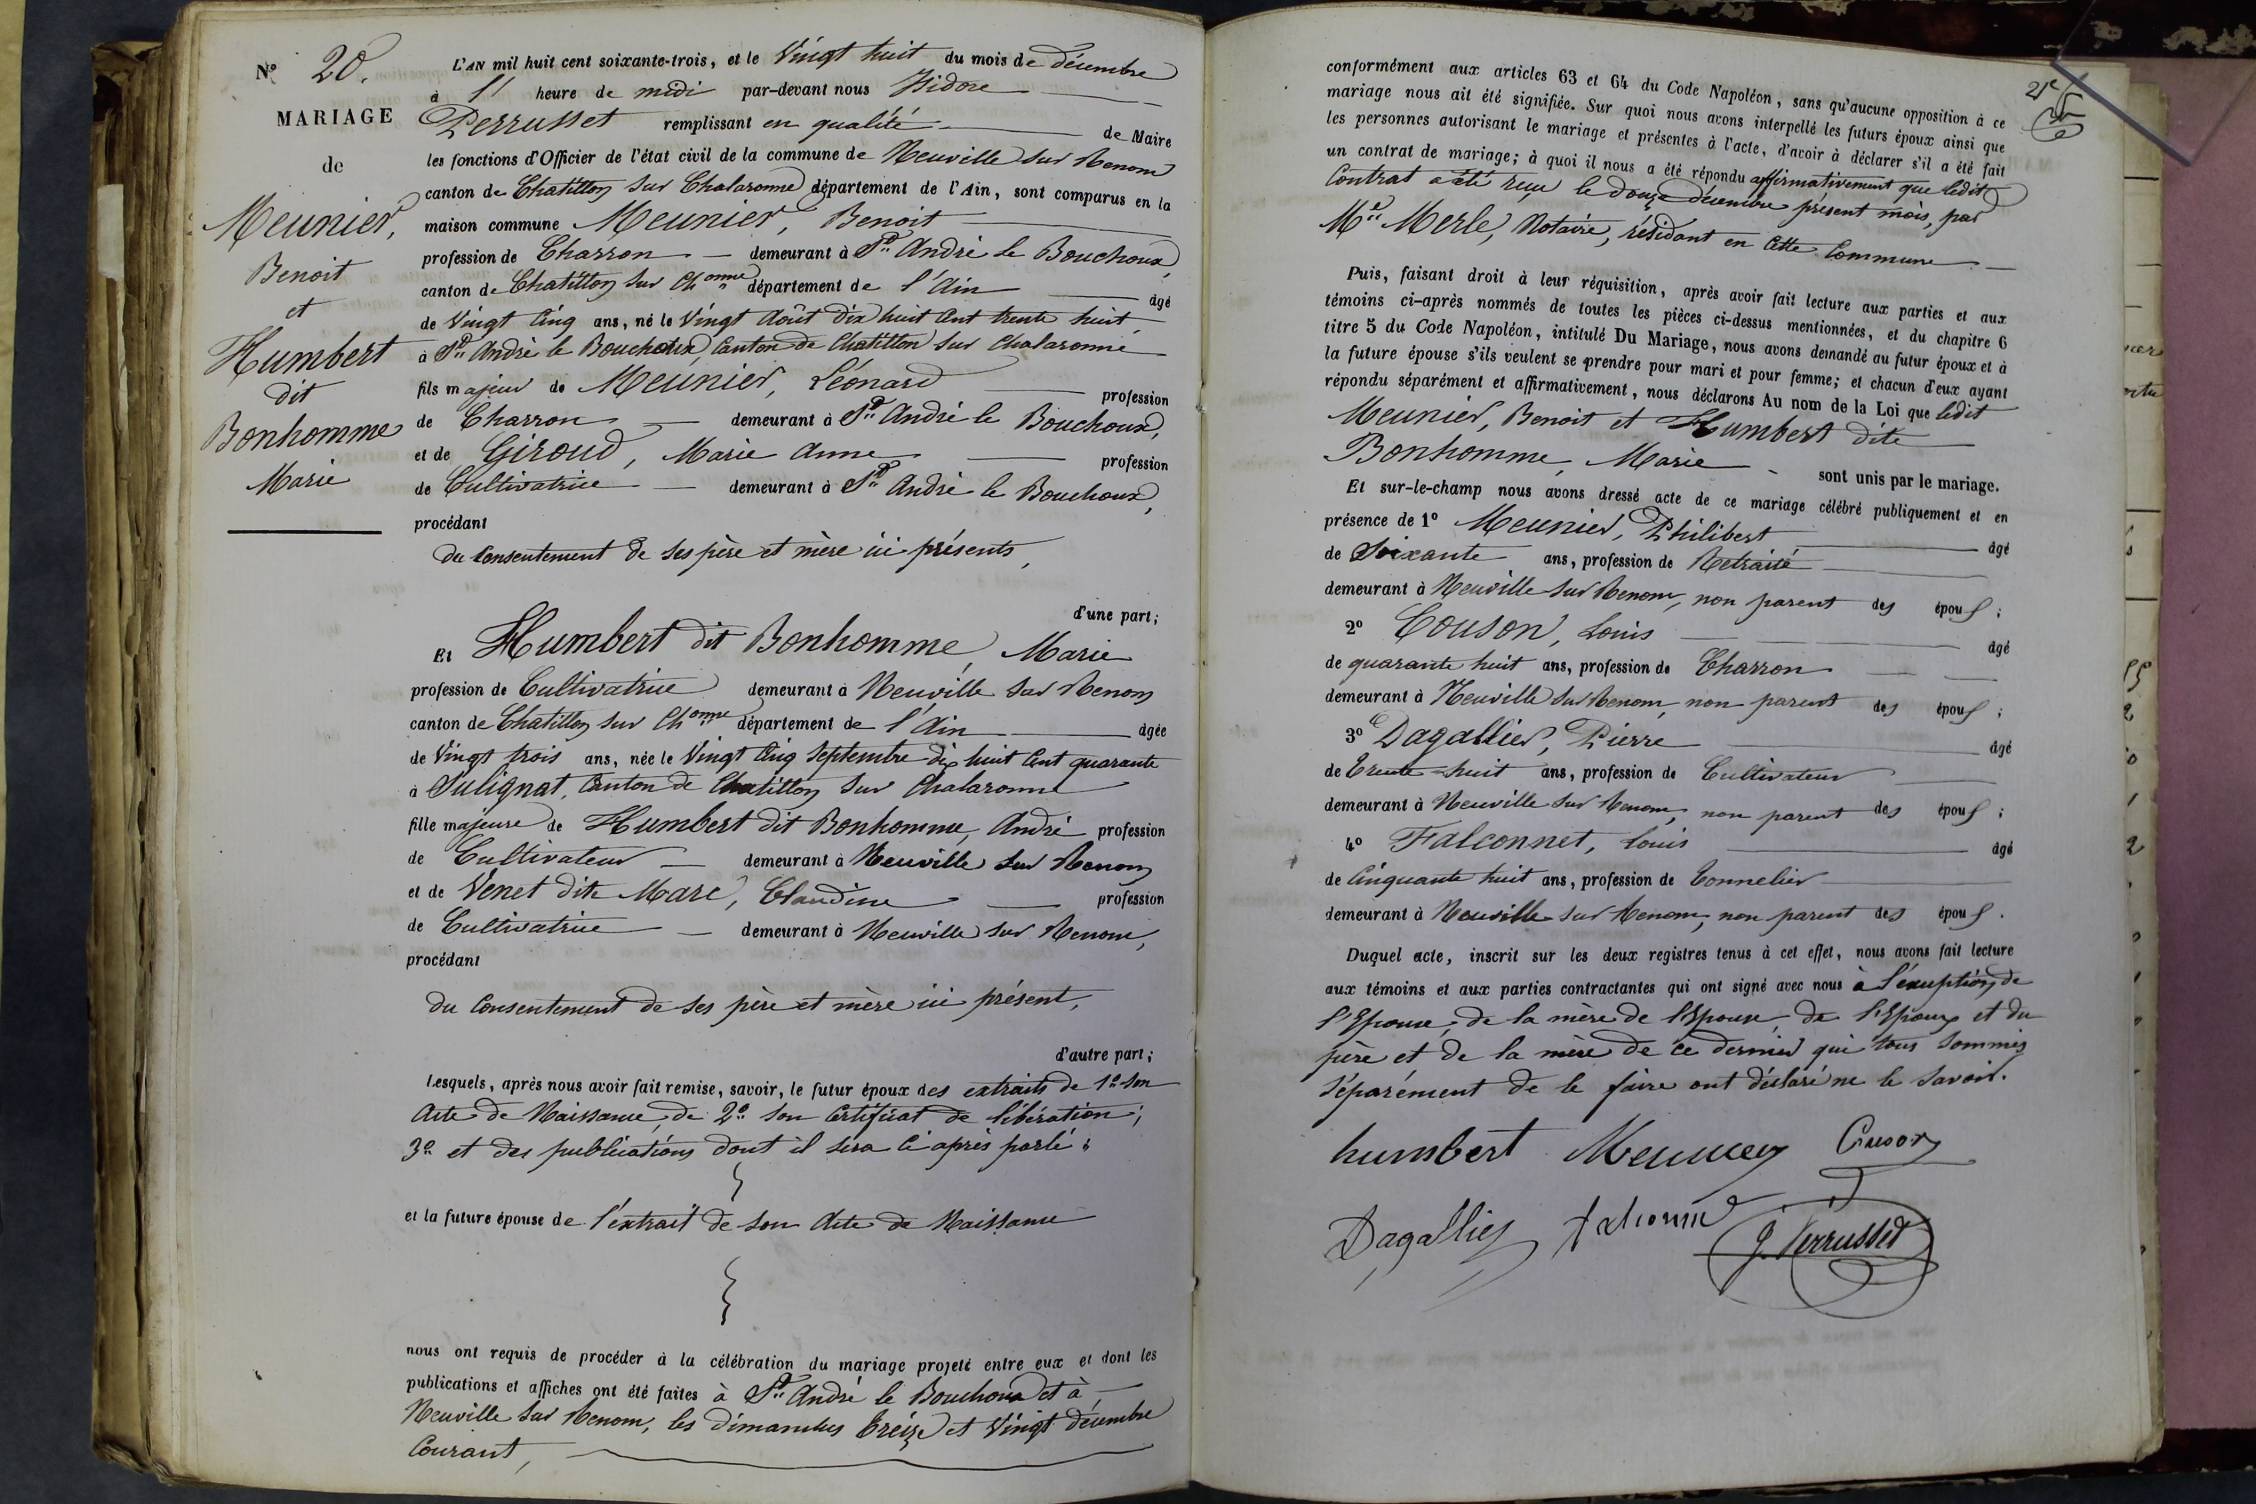 N.º 20.
MARIAGE
de
Meunier,
Benoit
et
Humbert
dit
Bonhomme
Marie
L'AN mil huit cent soixante-trois, et le Vingt huit du mois de décembre
à heure de midi par-devant nous Isidore
Perrusset remplissant en qualité de Maire
les fonctions d'Officier de l'état civil de la commune de Neuville sur Renom
canton de Chatillon sur Chalaronne département de l'Ain, sont comparus en la
maison commune Meunier, Benoit
profession de Charron demeurant à St. André le Bouchoux,
canton de Chatillon sur Chonne département de l'Ain âgé
de Vingt Cinq ans, né le Vingt Août dix huit Cent trente huit,
à St. André le Bouchoux Canton de Chatillon sur Chalaronne
fils majeur de Meunier, Léonard profession
de Charron demeurant à St. André le Bouchoux,
et de Giroud, Marie Anne profession
de Cultivatrice demeurant à St. André le Bouchoux,
procédant
du Consentement de ses père et mère ici présents,
d'une part;
Et Humbert dit Bonhomme, Marie
profession de Cultivatrice demeurant à Neuville sur Renom
canton de Chatillon sur Chonne département de l'Ain âgée
de Vingt trois ans, née le Vingt Cinq Septembre dix huit Cent quarante
à Sulignat, Canton de Chatillon sur Chalaronne
fille majeure de Humbert dit Bonhomme, André profession
de Cultivateur demeurant à Neuville sur Renom
et de Venet dite Mare, Claudine profession
de Cultivatrice demeurant à Neuville sur Renom,
procédant
du Consentement de ses père et mère ici présent,
d'autre part;
Lesquels, après nous avoir fait remise, savoir, le futur époux des extraits de 1º son
Acte de Naissance, de 2º son Certificat de libération;
3º et des publications dont il sera ci après parlé;
et la future épouse de l'extrait de son Acte de Naissance
nous ont requis de procéder à la célébration du mariage projeté entre eux et dont les
publications et affiches ont été faites à St. André le Bouchoux et à
Neuville sur Renom, les dimanches treize et Vingt décembre
Courant,
21e
conformément aux articles 63 et 64 du Code Napoléon, sans qu'aucune opposition à ce
mariage nous ait été signifiée. Sur quoi nous avons interpellé les futurs époux ainsi que
les personnes autorisant le mariage et présentes à l'acte, d'avoir à déclarer s'il a été fait
un contrat de mariage; à quoi il nous a été répondu affirmativement que ledit
Contrat a été reçu le douze décembre présent mois, par
Me. Merle, Notaire, résidant en Cette Commune
Puis, faisant droit à leur réquisition, après avoir fait lecture aux parties et aux
témoins ci-après nommés de toutes les pièces ci-dessus mentionnées, et du chapitre 6
titre 5 du Code Napoléon, intitulé Du Mariage, nous avons demandé au futur époux et à
la future épouse s'ils veulent se prendre pour mari et pour femme; et chacun d'eux ayant
répondu séparément et affirmativement, nous déclarons Au nom de la Loi que ledit
Meunier, Benoit et Humbert dite
Bonhomme, Marie sont unis par le mariage.
Et sur-le-champ nous avons dressé acte de ce mariage célébré publiquement et en
présence de 1º Meunier, Philibert âgé
de Soixante ans, profession de Retraité
demeurant à Neuville sur Renom, non parent des épouS;
2º Couson, Louis âgé
de quarante huit ans, profession de Charron
demeurant à Neuville sur Renom, non parent des épouS;
3º Dagallier, Pierre âgé
de Trente-huit ans, profession de Cultivateur
demeurant à Neuville sur Renom, non parent des épouS;
4º Falconnet, Louis âgé
de Cinquante huit ans, profession de Tonnelier
demeurant à Neuville sur Renom, non parent des épouS.
Duquel acte, inscrit sur les deux registres tenus à cet effet, nous avons fait lecture
aux témoins et aux parties contractantes qui ont signé avec nous à l'exeuption de
l'Epouse, de la mère de l'Epouse, de l'Epoux et du
père et de la mère de ce dernier qui tous sommés
séparément de le faire ont déclaré ne le savoir.
humbert Meunier Cuson
Dagallier falconne
J. Perrusset